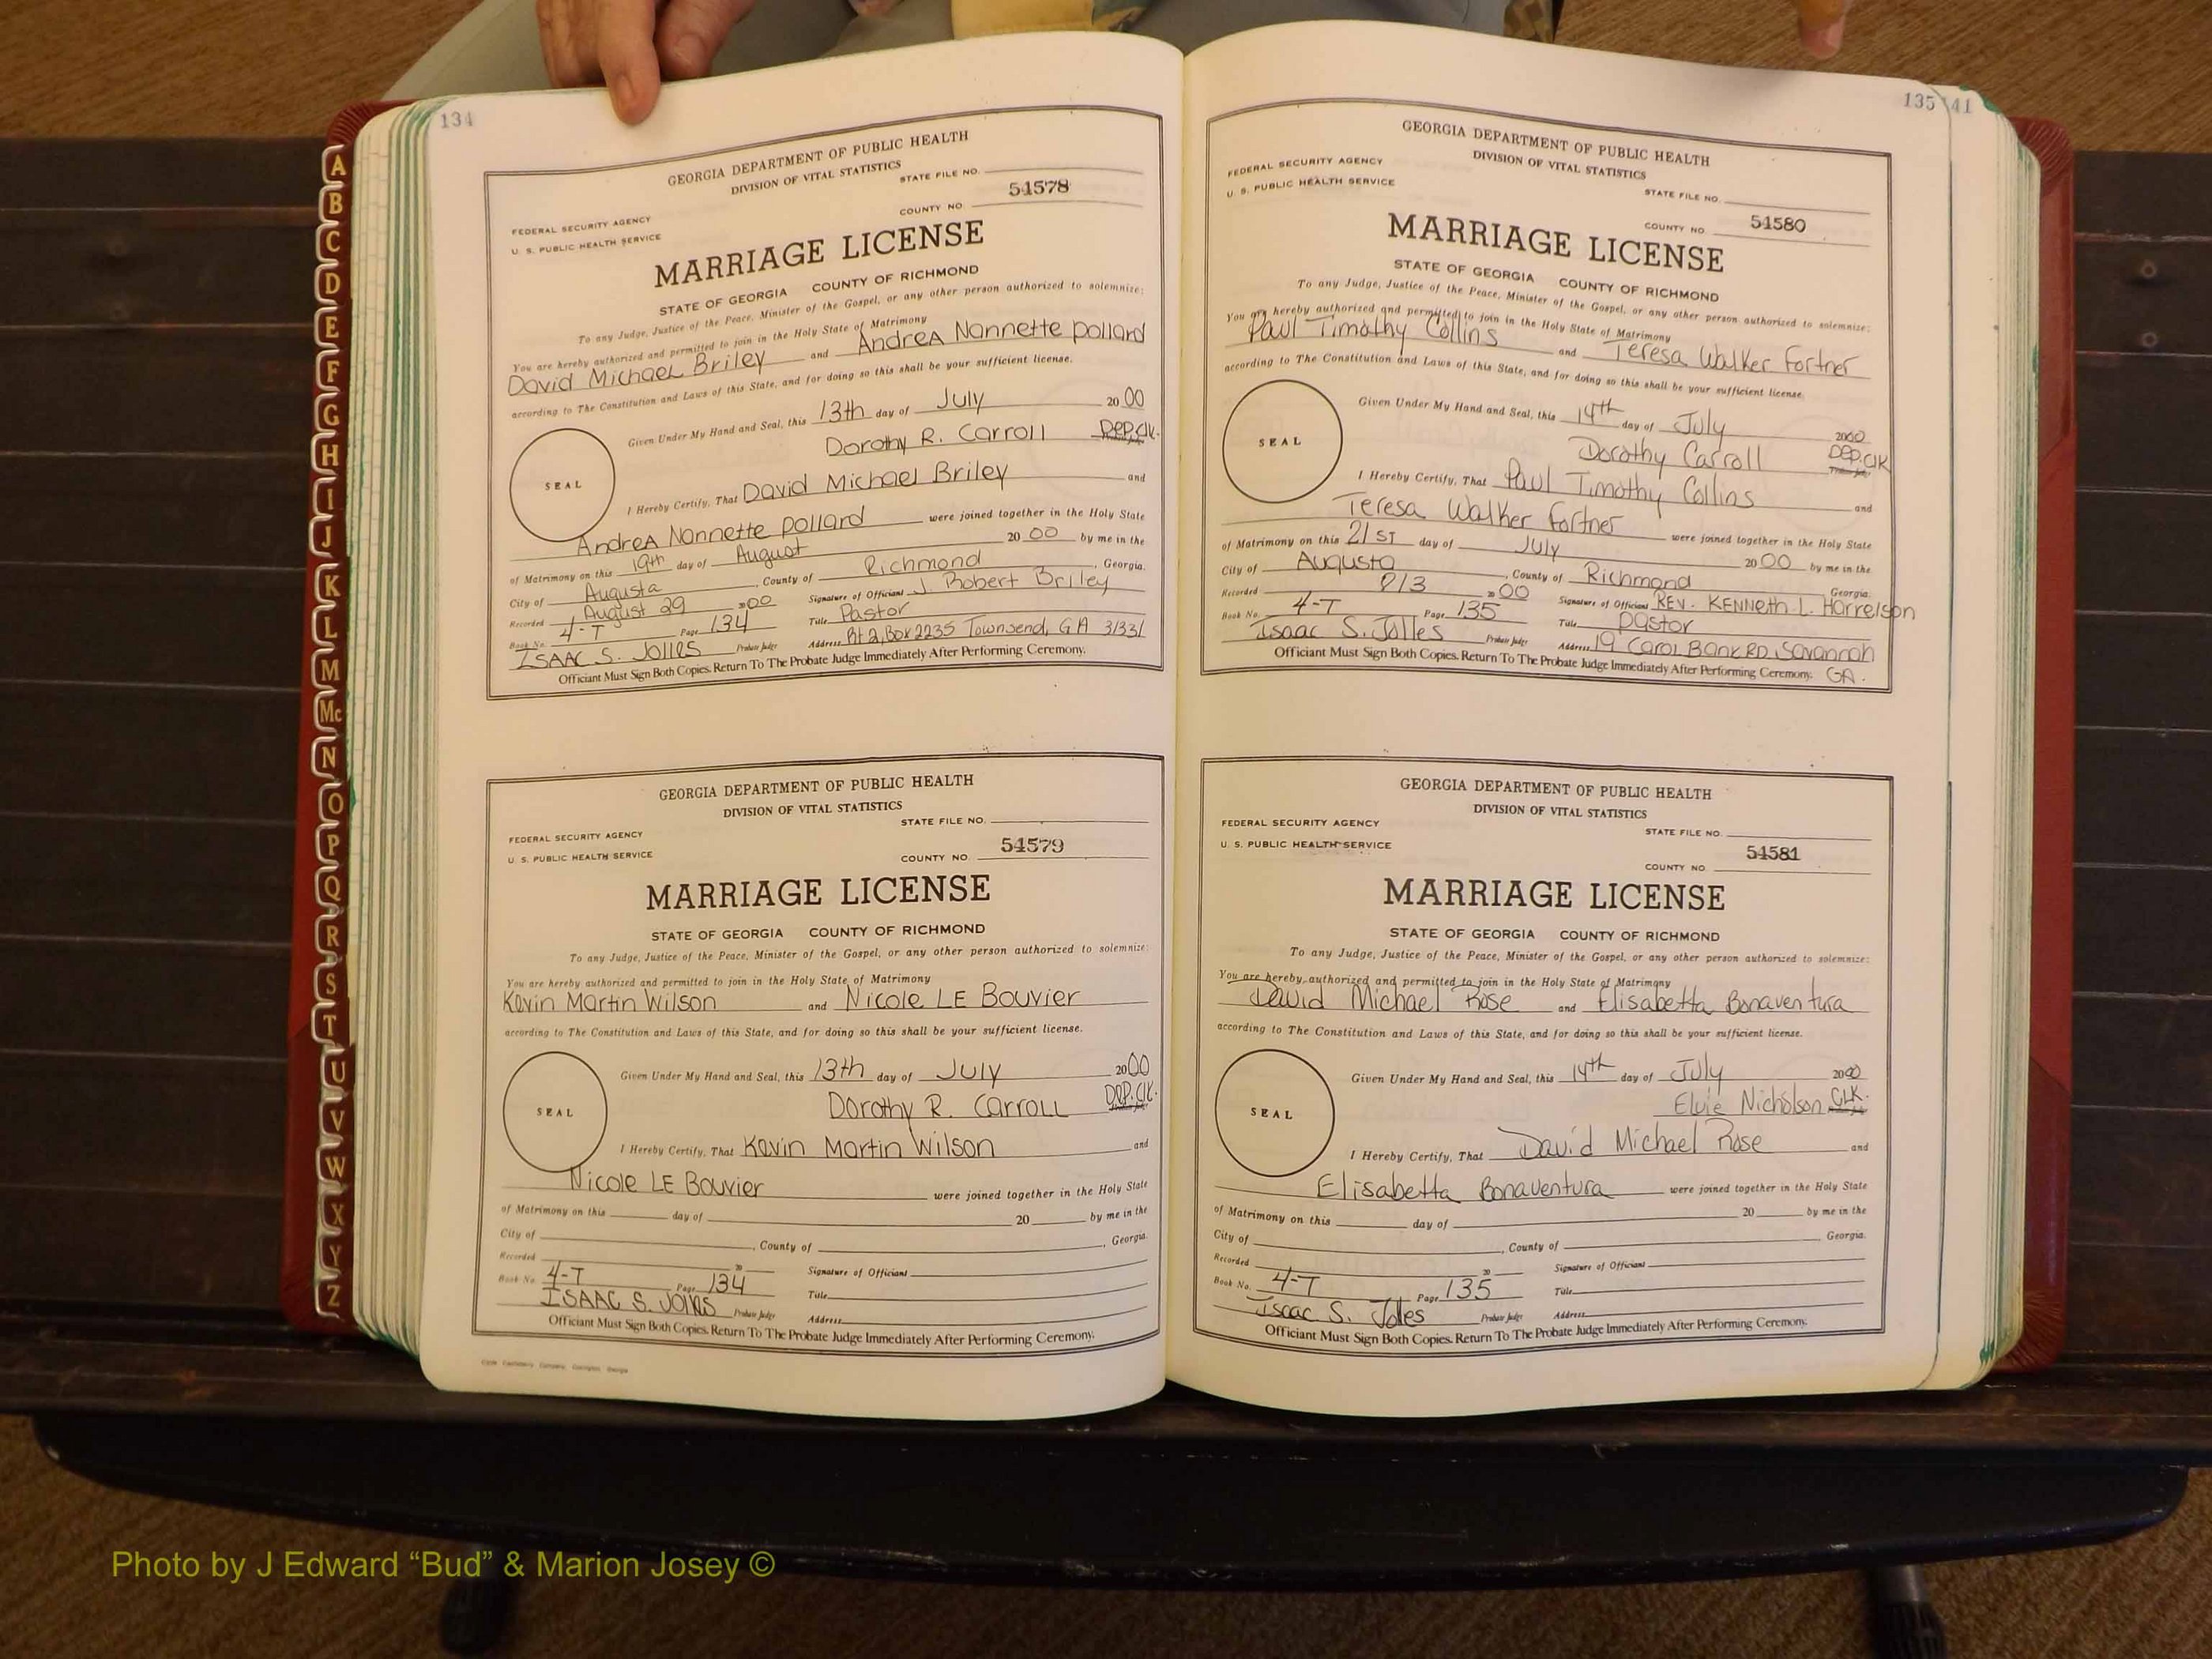 134
GEORGIA DEPARTMENT OF PUBLIC HEALTH
DIVISION OF VITAL STATISTICS
STATE FILE NO.
FEDERAL SECURITY AGENCY
U. S. PUBLIC HEALTH SERVICE
COUNTY NO. 54578
MARRIAGE LICENSE
STATE OF GEORGIA COUNTY OF RICHMOND
To any Judge, Justice of the Peace, Minister of the Gospel, or any other person authorized to solemnize:
You are hereby authorized and permitted to join in the Holy State of Matrimony
David Michael Briley and Andrea Nannette pollard
according to The Constitution and Laws of this State, and for doing so this shall be your sufficient license.
Given Under My Hand and Seal, this 13th day of July 2000
Dorothy R. Carroll Dep.Clk.
SEAL
I Hereby Certify, That David Michael Briley and
Andrea Nannette pollard were joined together in the Holy State
of Matrimony on this 19th day of August 20 00 by me in the
City of Augusta, County of Richmond, Georgia.
Recorded August 29 2000 Signature of Officiant J. Robert Briley
Book No. 4-T Page 134 Title Pastor
ISAAC S. JOlles Probate Judge Address Rt 2, Box 2235 Townsend, GA 31331
Officiant Must Sign Both Copies. Return To The Probate Judge Immediately After Performing Ceremony.
GEORGIA DEPARTMENT OF PUBLIC HEALTH
DIVISION OF VITAL STATISTICS
STATE FILE NO.
FEDERAL SECURITY AGENCY
U. S. PUBLIC HEALTH SERVICE
COUNTY NO. 54579
MARRIAGE LICENSE
STATE OF GEORGIA COUNTY OF RICHMOND
To any Judge, Justice of the Peace, Minister of the Gospel, or any other person authorized to solemnize:
You are hereby authorized and permitted to join in the Holy State of Matrimony
Kevin Martin Wilson and Nicole LE Bouvier
according to The Constitution and Laws of this State, and for doing so this shall be your sufficient license.
Given Under My Hand and Seal, this 13th day of July 2000
Dorothy R. Carroll Dep.Clk.
SEAL
I Hereby Certify, That Kevin Martin Wilson and
Nicole LE Bouvier were joined together in the Holy State
of Matrimony on this day of 20 by me in the
City of , County of , Georgia.
Recorded 20 Signature of Officiant
Book No. 4-T Page 134 Title
ISAAC S. JOlles Probate Judge Address
Officiant Must Sign Both Copies. Return To The Probate Judge Immediately After Performing Ceremony.
135 41
GEORGIA DEPARTMENT OF PUBLIC HEALTH
DIVISION OF VITAL STATISTICS
FEDERAL SECURITY AGENCY
U. S. PUBLIC HEALTH SERVICE
STATE FILE NO.
COUNTY NO. 54580
MARRIAGE LICENSE
STATE OF GEORGIA COUNTY OF RICHMOND
To any Judge, Justice of the Peace, Minister of the Gospel, or any other person authorized to solemnize:
You are hereby authorized and permitted to join in the Holy State of Matrimony
Paul Timothy Collins and Teresa Walker Fortner
according to The Constitution and Laws of this State, and for doing so this shall be your sufficient license.
Given Under My Hand and Seal, this 14th day of July 2000
Dorothy Carroll Dep.Clk
SEAL
I Hereby Certify, That Paul Timothy Collins and
Teresa Walker Fortner were joined together in the Holy State
of Matrimony on this 21st day of July 20 00 by me in the
City of Augusta, County of Richmond Georgia.
Recorded 8/3 2000 Signature of Officiant REV. KENNETH L. Harrelson
Book No. 4-T Page 135 Title pastor
Isaac S. Jolles Probate Judge Address 19 Carol Bank RD, Savannah
GA.
Officiant Must Sign Both Copies. Return To The Probate Judge Immediately After Performing Ceremony.
GEORGIA DEPARTMENT OF PUBLIC HEALTH
DIVISION OF VITAL STATISTICS
FEDERAL SECURITY AGENCY
U. S. PUBLIC HEALTH SERVICE
STATE FILE NO.
COUNTY NO. 54581
MARRIAGE LICENSE
STATE OF GEORGIA COUNTY OF RICHMOND
To any Judge, Justice of the Peace, Minister of the Gospel, or any other person authorized to solemnize:
You are hereby authorized and permitted to join in the Holy State of Matrimony
David Michael Rose and Elisabetta Bonaventura
according to The Constitution and Laws of this State, and for doing so this shall be your sufficient license.
Given Under My Hand and Seal, this 14th day of July 2000
Elvie Nicholson CLK.
SEAL
I Hereby Certify, That David Michael Rose and
Elisabetta Bonaventura were joined together in the Holy State
of Matrimony on this day of 20 by me in the
City of , County of Georgia.
Recorded 20 Signature of Officiant
Book No. 4-T Page 135 Title
Isaac S. Jolles Probate Judge Address
Officiant Must Sign Both Copies. Return To The Probate Judge Immediately After Performing Ceremony.
A
B
C
D
E
F
G
H
I
J
K
L
M
Mc
N
O
P
Q
R
S
T
U
V
W
X
Y
Z
Photo by J Edward “Bud” & Marion Josey ©